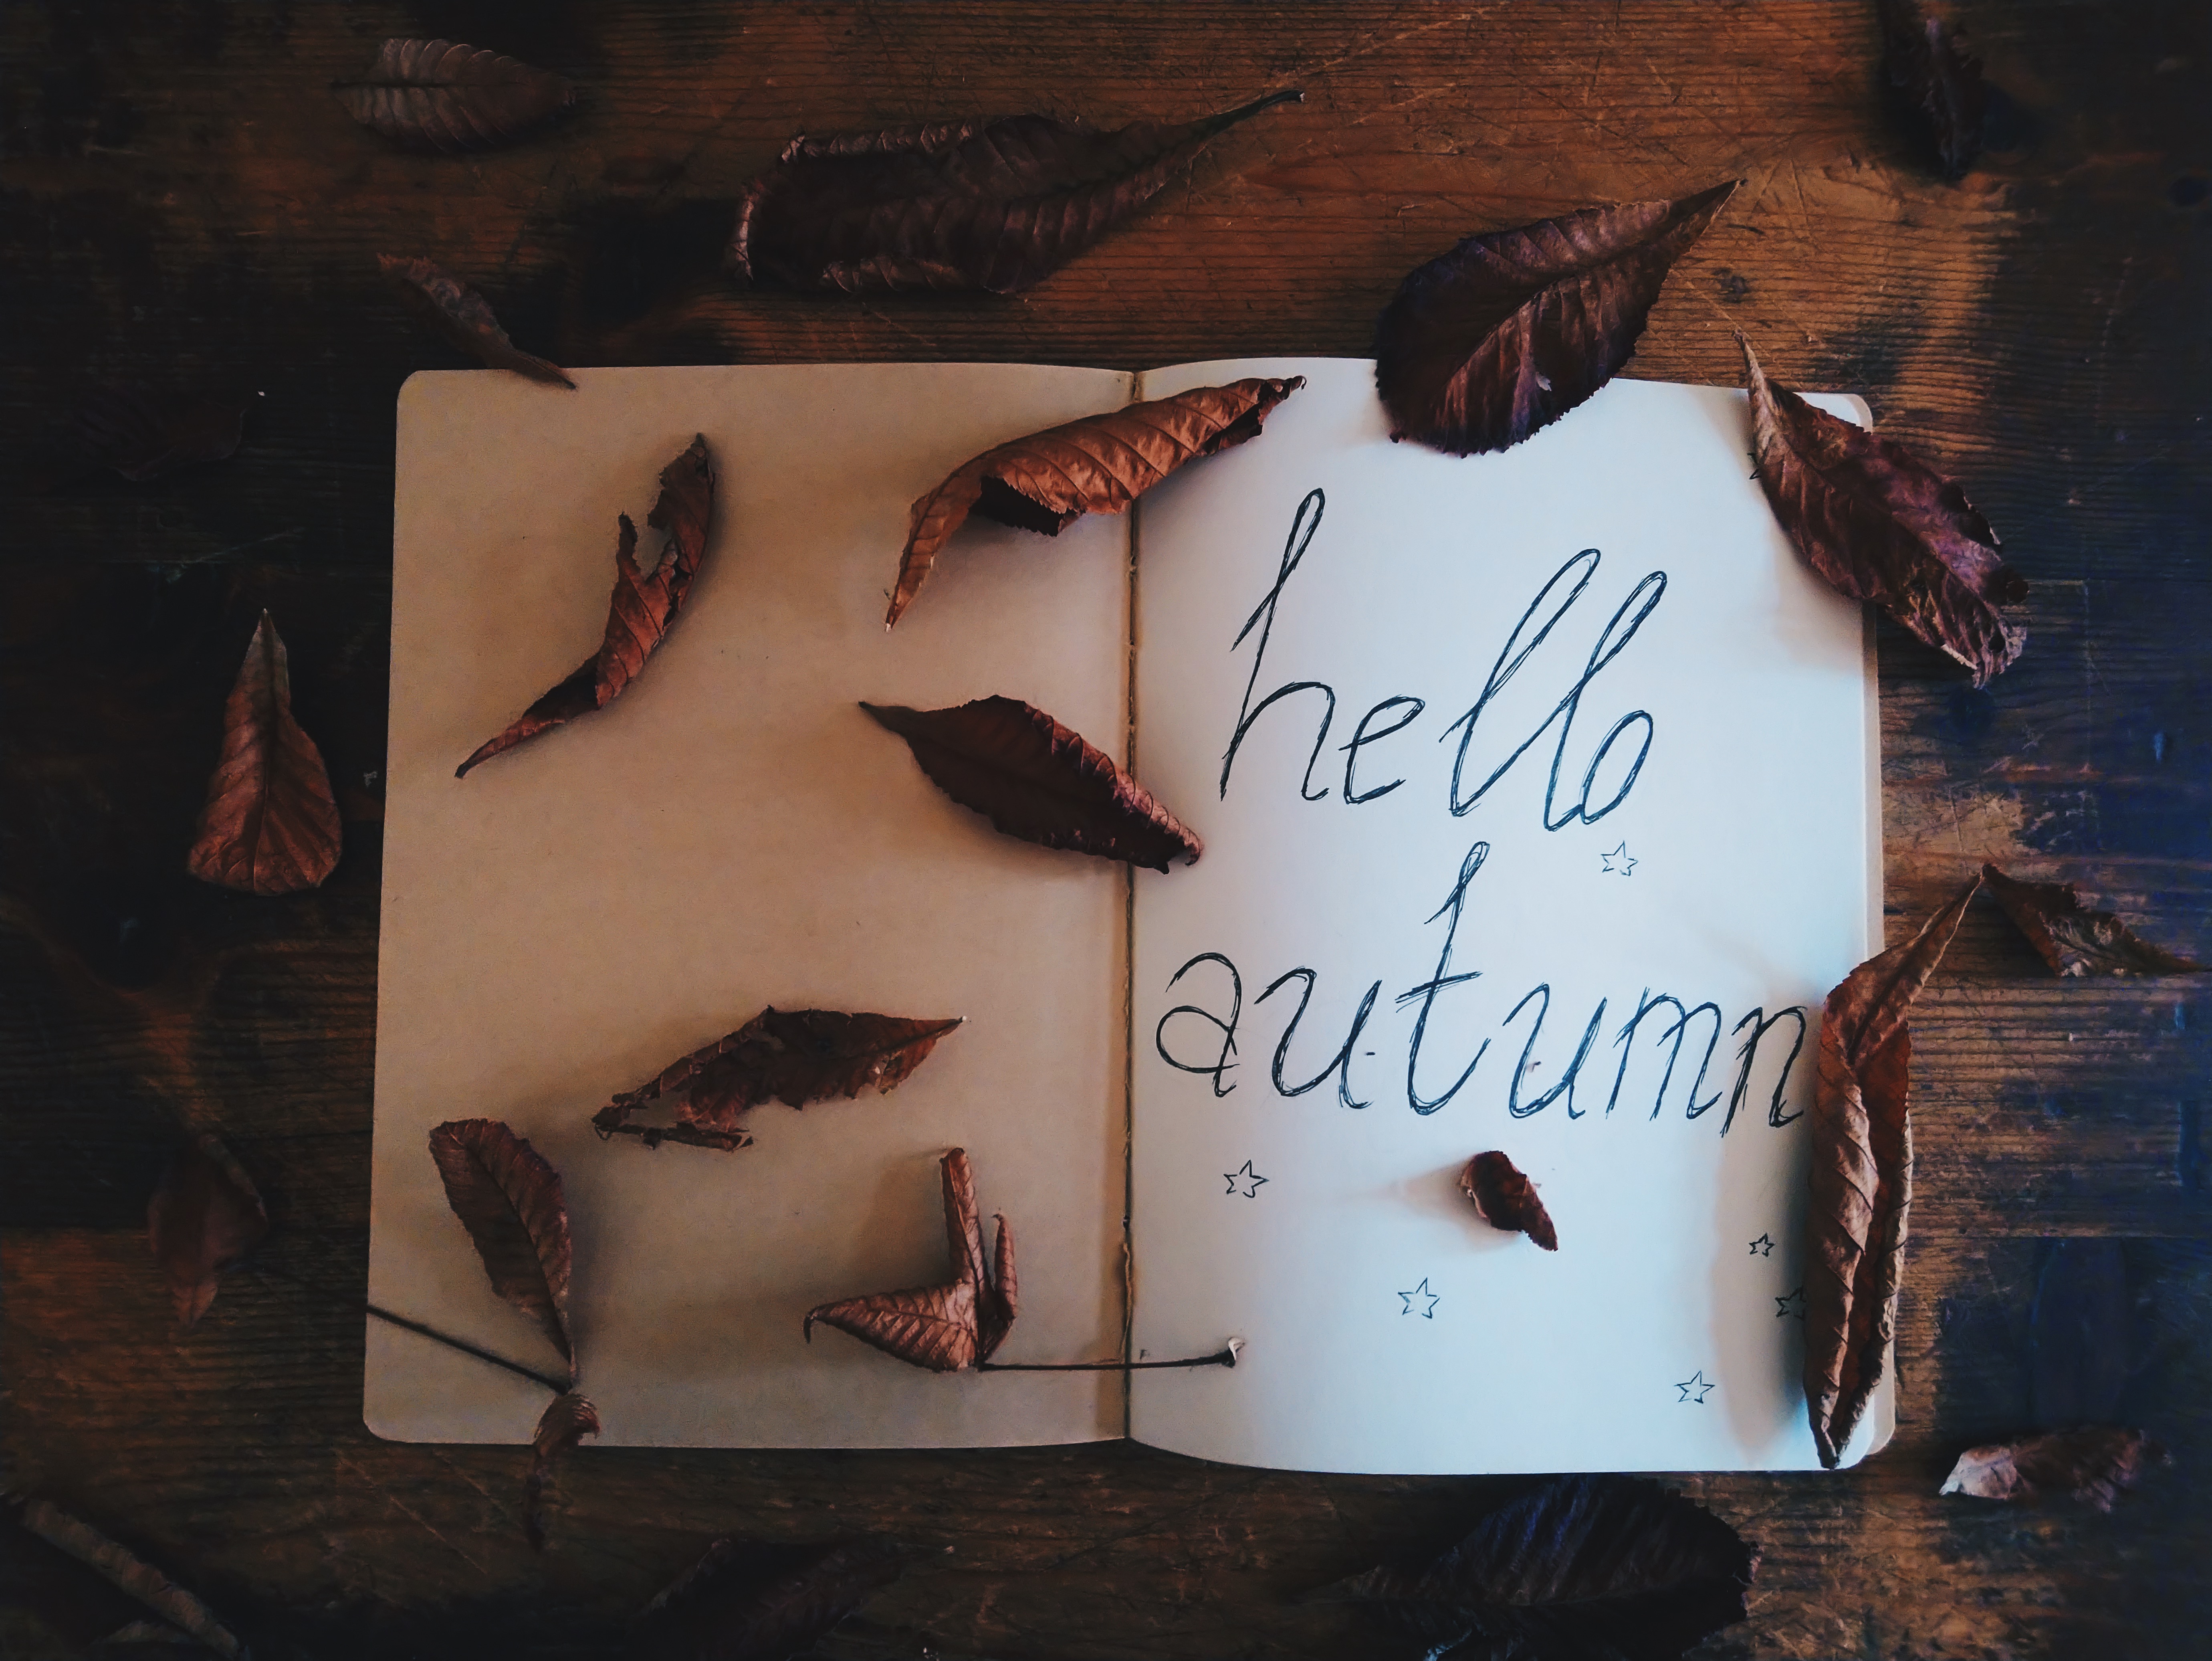 hello
autumn